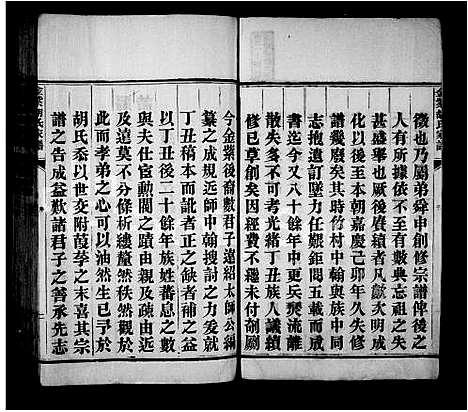 徵也乃屬弟舜申創修宗譜俾後之
人有所據依不至有數典忘祖之失
甚盛舉也厥後賡續者凡歔次明成
化以後至本朝嘉慶己卯年久失修
譜幾廢矣其時竹村中翰與族中同
志抱遺訂墜力任艱鉅閱五載而成
書迄今又八十餘年中更兵燹流離
散失多不可考光緒丁丑族人議續
修已草創矣因經費不繼未付剞劂
今金紫後裔數君子遠紹太師公編
纂之成規近師中翰搜討之力爰就
丁丑稿本而正之缺者補之益
以丁丑後二十餘年族姓蕃息之數
與夫仕宦勳閥之蹟由親及疏由近
及遠莫不分條析縷釐然秩然觀於
此而孝弟之心可以油然生已予於
胡氏忝以世交附葭莩之末喜其宗
譜之告成益歎諸君子之善承先志
金紫胡氏家譜